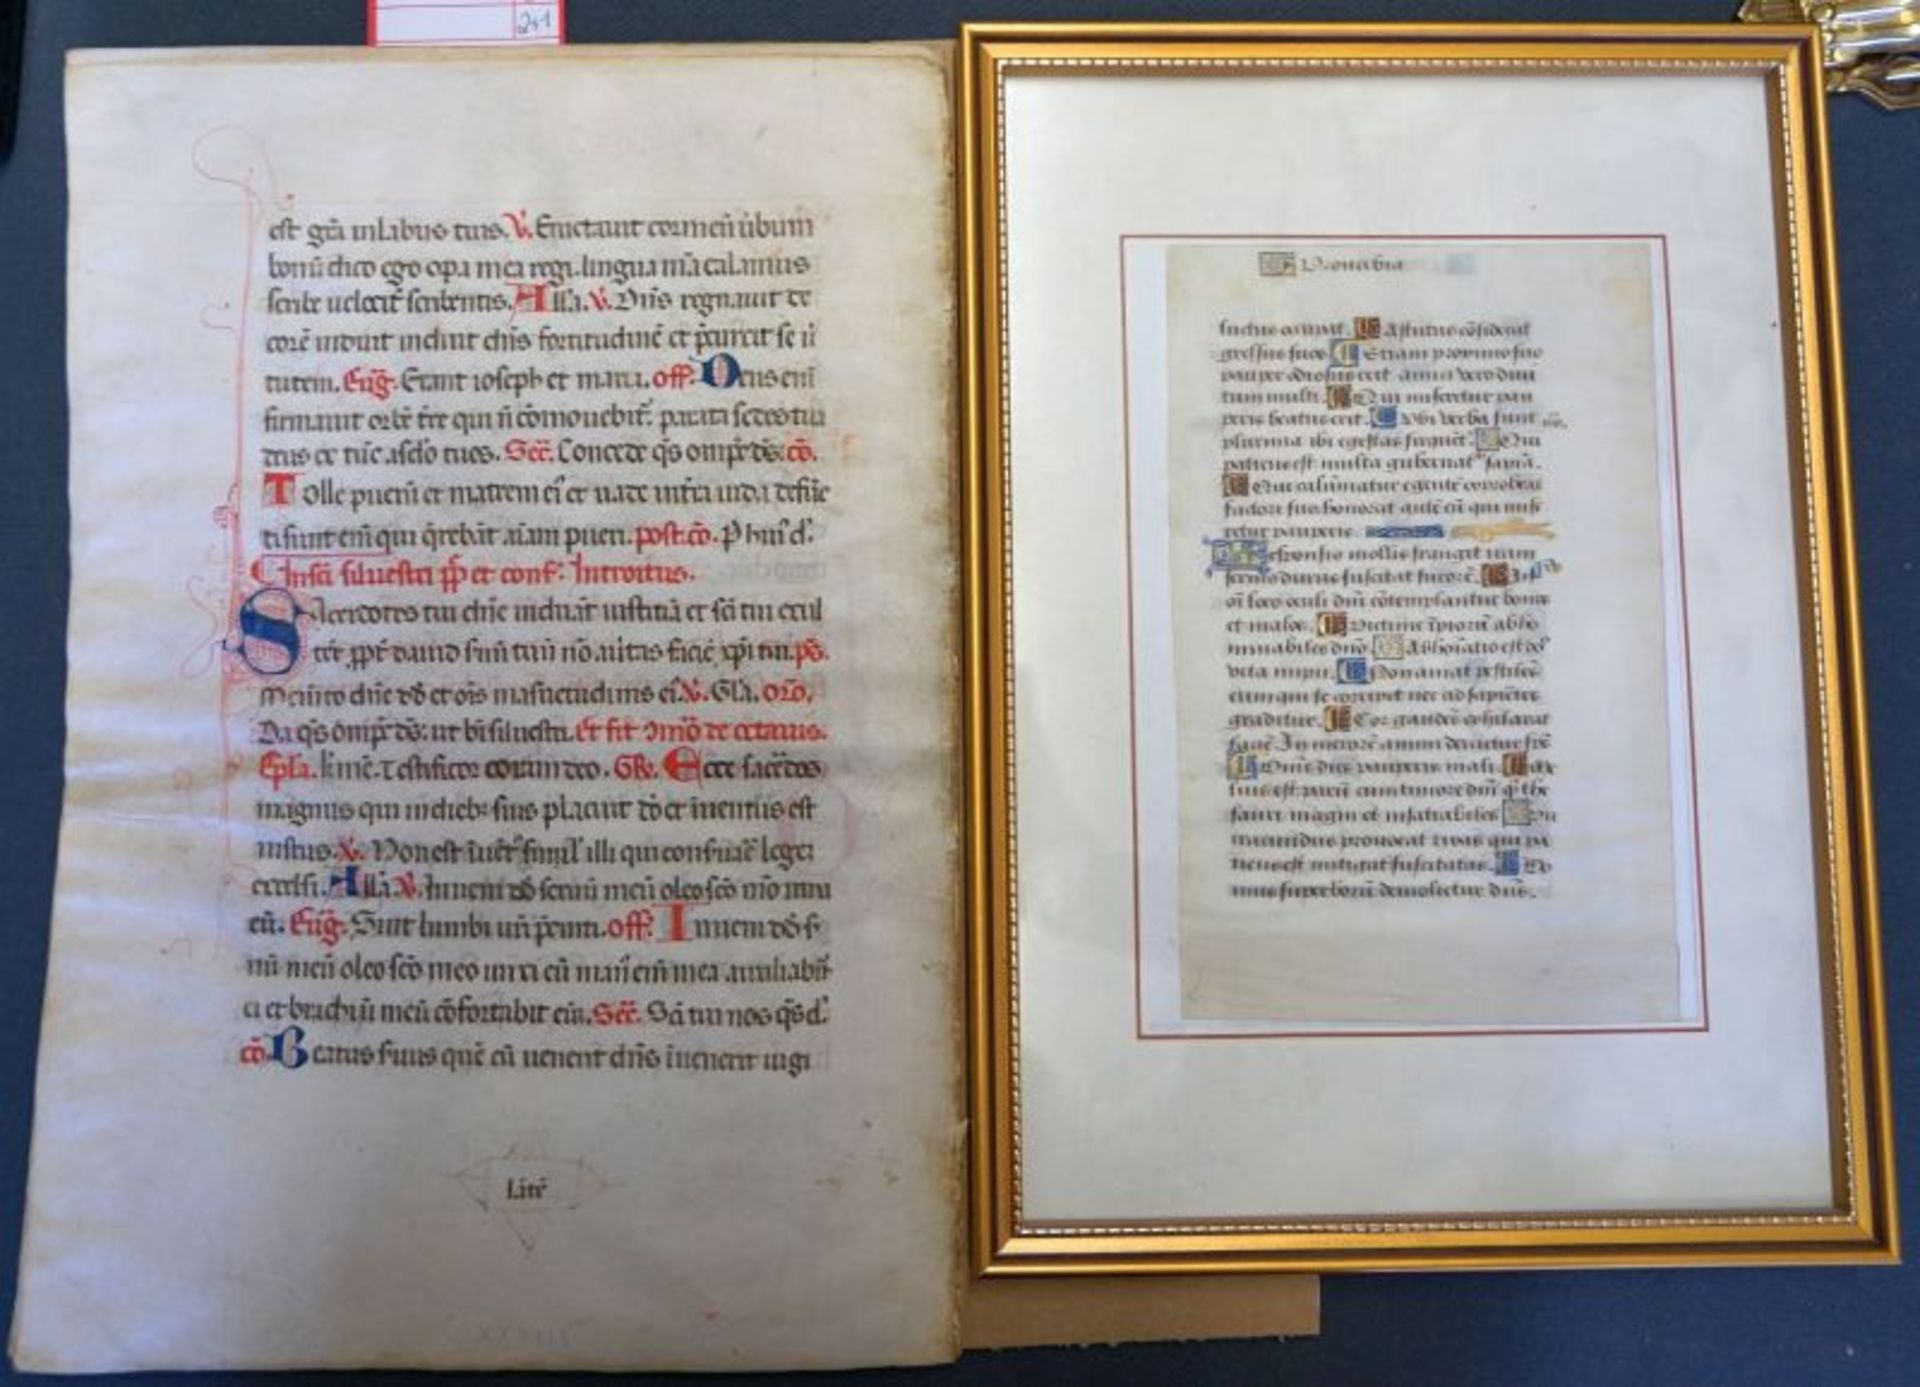 241
est gr̄a in labiis tuis. V̄. Eructauit cor meū ūbum
bonū dico ego opa mea regi. lingua m̄a calamus
scribe uelocit̄ scribentis. All'a. V̄. Dn̄s regnauit de
corē induit induit dn̄s fortitudinē et p̄cinxit se ū
tutem. Eūg. Erant ioseph et maria. off. Deus eni
firmauit orbē tr̄e qui n̄ cōmouebit̄. parata sedes tua
deus ex tūc a sclo tu es. Sec̄. Concede q̄s omp̄s d̄s. cō.
Tolle puerū et matrem ei et uade in tr̄a iuda defūc
ti sunt eni qui q̄rebāt aīam pueri. post cō. P hui d'.
In sc̄i siluestri pp et conf. Introitus.
Sacerdotes tui dn̄e induāt iustitiā et sc̄i tui exul
tēt ppt̄ dauid suū tuū nō auitas faciē xp̄i tui. ps̄.
Memēto dn̄e dd et oīs māsuetudinis ei. V̄. Gl'a. or̄o.
Da q̄s omp̄s d̄s: ut bī siluestri. Et fit 9mō de octauis.
Epl'a. kīme. Testificor coram deo. GR. Ecce sacēdos
magnus qui in dieb; suis placuit dō et īuentus est
iustus. V̄. Non est īuēt simil' illi qui conseruāet legē
excelsi. All'a V̄. Inueni dd seruū meū oleo scō meo unxi
eū. Eūg. Sint lumbi uri p̄cincti. off. Inueni dd s̄
uū meū oleo scō meo unxi eū man' eni mea auxiliabit̄
ei et brachiū meū cōfortabit eū. Sec̄. Sc̄i tui nos q̄s d'.
cō. Beatus seruus quē cū uenerit dn̄s īuenerit uigi
Litē
Prouerbia
Astutus cōsiderat
gressus suos Etiam proximo suo
pauper odiosus erit amici vero diui
tum multi. Qui miseretur pau
peris beatus erit. Vbi verba sunt
plurima ibi egestas frequēt̄. Qui
patiens est multa gubernat sapiā.
Qui calūniatur egentē exprobrat
factori suo honorat autē eū qui mise
retur pauperis
Responsio mollis frangit iram
sermo durus suscitat furorē. In
oi loco oculi dn̄i cōtemplantur bonos
et malos. Victime īpiorū abho
minabiles dn̄o. Abhoīatio est dn̄o
vita impii. Non amat pestilēs
eum qui se corripit nec ad sapiētes
graditur. Cor gaudēs exhilarat
faciē In merore animi deiicitur spūs
Omēs dies pauperis mali. Me
lius est parū cum timore dn̄i q̄ the
sauri magni et insatiabiles Vir
iracundus prouocat rixas qui pa
tiens est mitigat suscitatas. Do
mus superborū demolietur dn̄s.